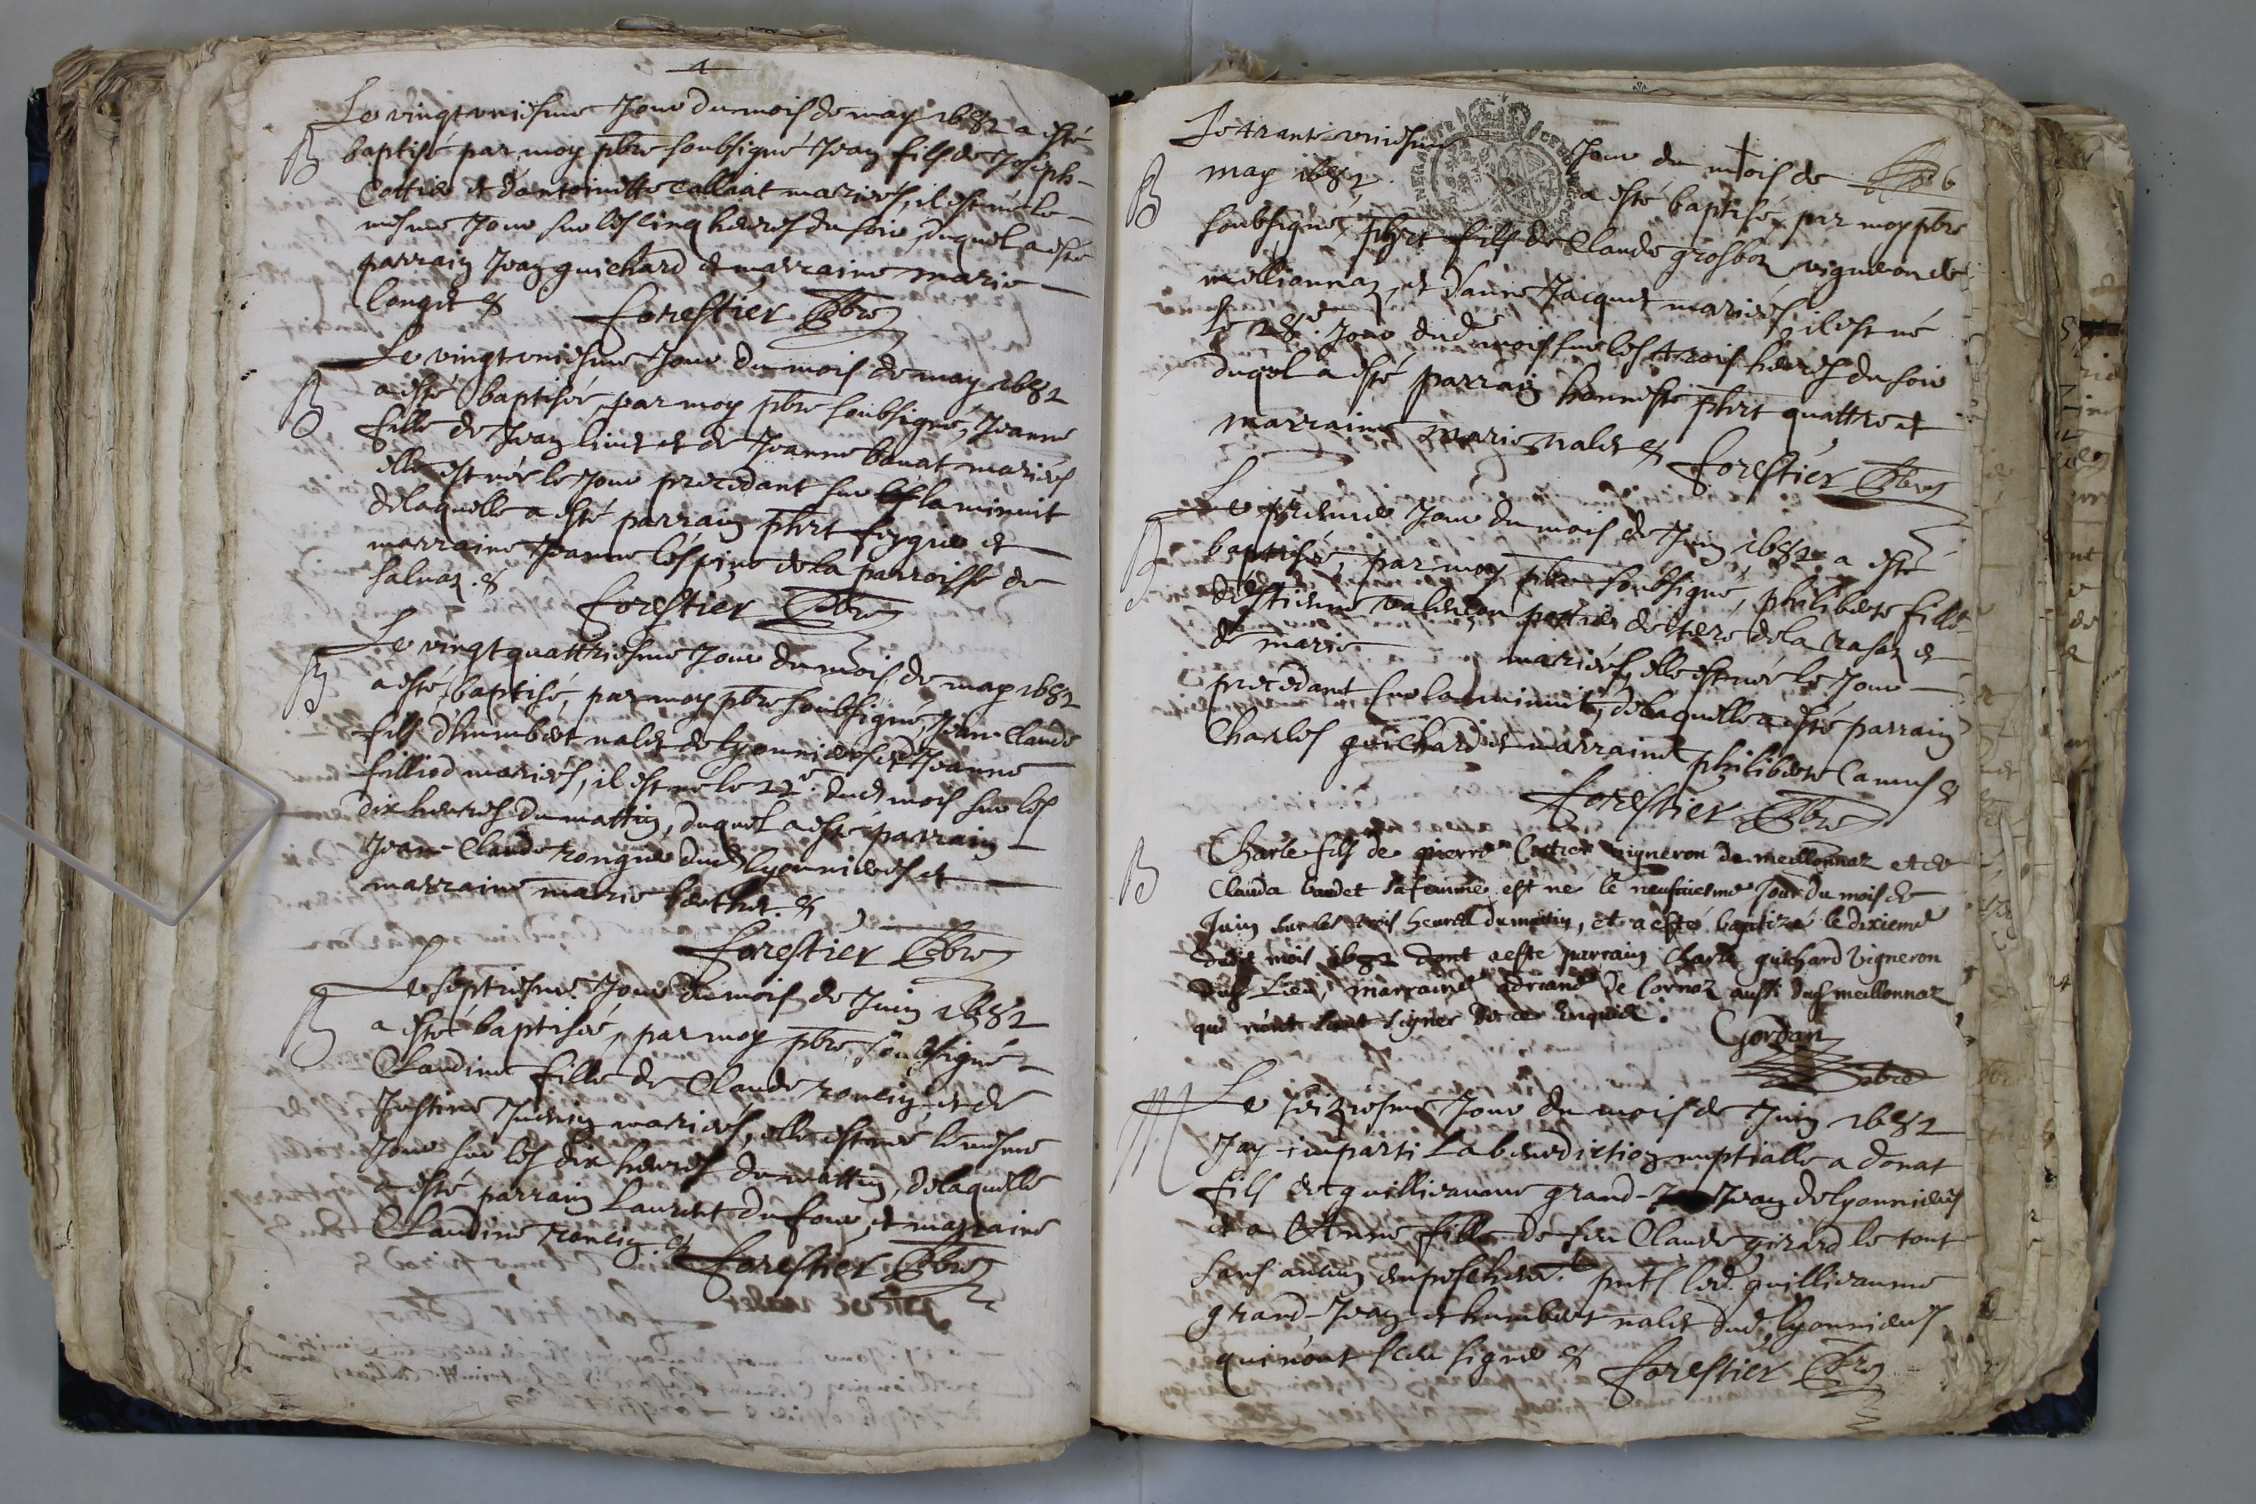 Le vingt uniesme Jour du mois de may 1682 a esté
B baptisé par moy pbre soubsigné Jean fils de Joseph
Cottier et d'antoinette calliat mariés, il est né le
mesme Jour sur les cinq heures du soir, duquel a esté
parrain Jean guichard et marraine marie
longet &
Forestier Pbre
Le vingt uniesme Jour du mois de may 1682
B a esté baptisée, par moy pbre soubsigné, Jeanne
fille de Jean et de Jeanne mariés
elle est née le Jour precedant sur la minuit
delaquelle a esté parrain phrt et
marraine Jeanne l'espine de la parroisse de
salnaz. &
Forestier Pbre
Le vingt quattriesme Jour du mois de may 1682
B a esté baptisé, par moy pbre soubsigné, Jean-Claude
fils d'humbert nalet de lyonnieres et Jeanne
filliod mariés, il est né le 22e dud mois sur les
dix heures du mattin, duquel a esté parrain
Jean-Claude dud lyonnieres et
marraine marie berthet. &
Forestier Pbre
Le septiesme Jour du mois de Juin 1682
B a esté baptisée, par moy pbre soubsigné
Claudine fille de Claude roncin, et de
Justine mariés, elle est née le mesme
Jour sur les dix heures du mattin, delaquelle
a esté parrain Laurent du four, et marraine
Claudine roncin. &
Forestier Pbre
Le trante uniesme Jour du mois de
B may 1682 a esté baptisé par moy pbre
soubsigné, phrt fils de Claude grosbon vigneron de
meillionnaz, et d'anne Jacquet mariés, il est né
le 28e Jour dud mois sur les trois heures du soir
duqel a esté parrain honneste phrt quattre et
marraine marie nalet &
Forestier Pbre
Le premier Jour du mois de Juin 1682 a esté
B baptisée, par moy pbre soubsigné, philiberte fille
d'estienne potier de terre de la et
de marie mariés, elle est née le Jour
precedant sur la minuit, delaquelle a esté parrain
Charles guichard et marraine philiberte Camus &
Forestier Pbre
B Charle fils de pierre Cottier vigneron de meillonnaz et de
Clauda baudet sa femme est né le neufiesme Jour du mois de
Juin sur les trois heures du matin, et a esté baptizé le dixieme
dudit mois 1682 dont a esté parrain Charle guichard Vigneron
dud Lieu, marraine adriane De Cornoz aussi dud meillonnaz
qui n'ont signer de ce Enquis.
Gordan
Pbre
M Le seiziesme Jour du mois de Juin 1682
J'ay imparti La benediction nuptialle a donat
fils de guillieaume grand-Jean de lyonnieres
et a Anne fille de feu Claude girard le tout
sans aucun empeschemt pnts led. guillieaume
grand-Jean et humbert nalet dud lyonnieres
qui n'ont sceu signer &
Forestier Pbre